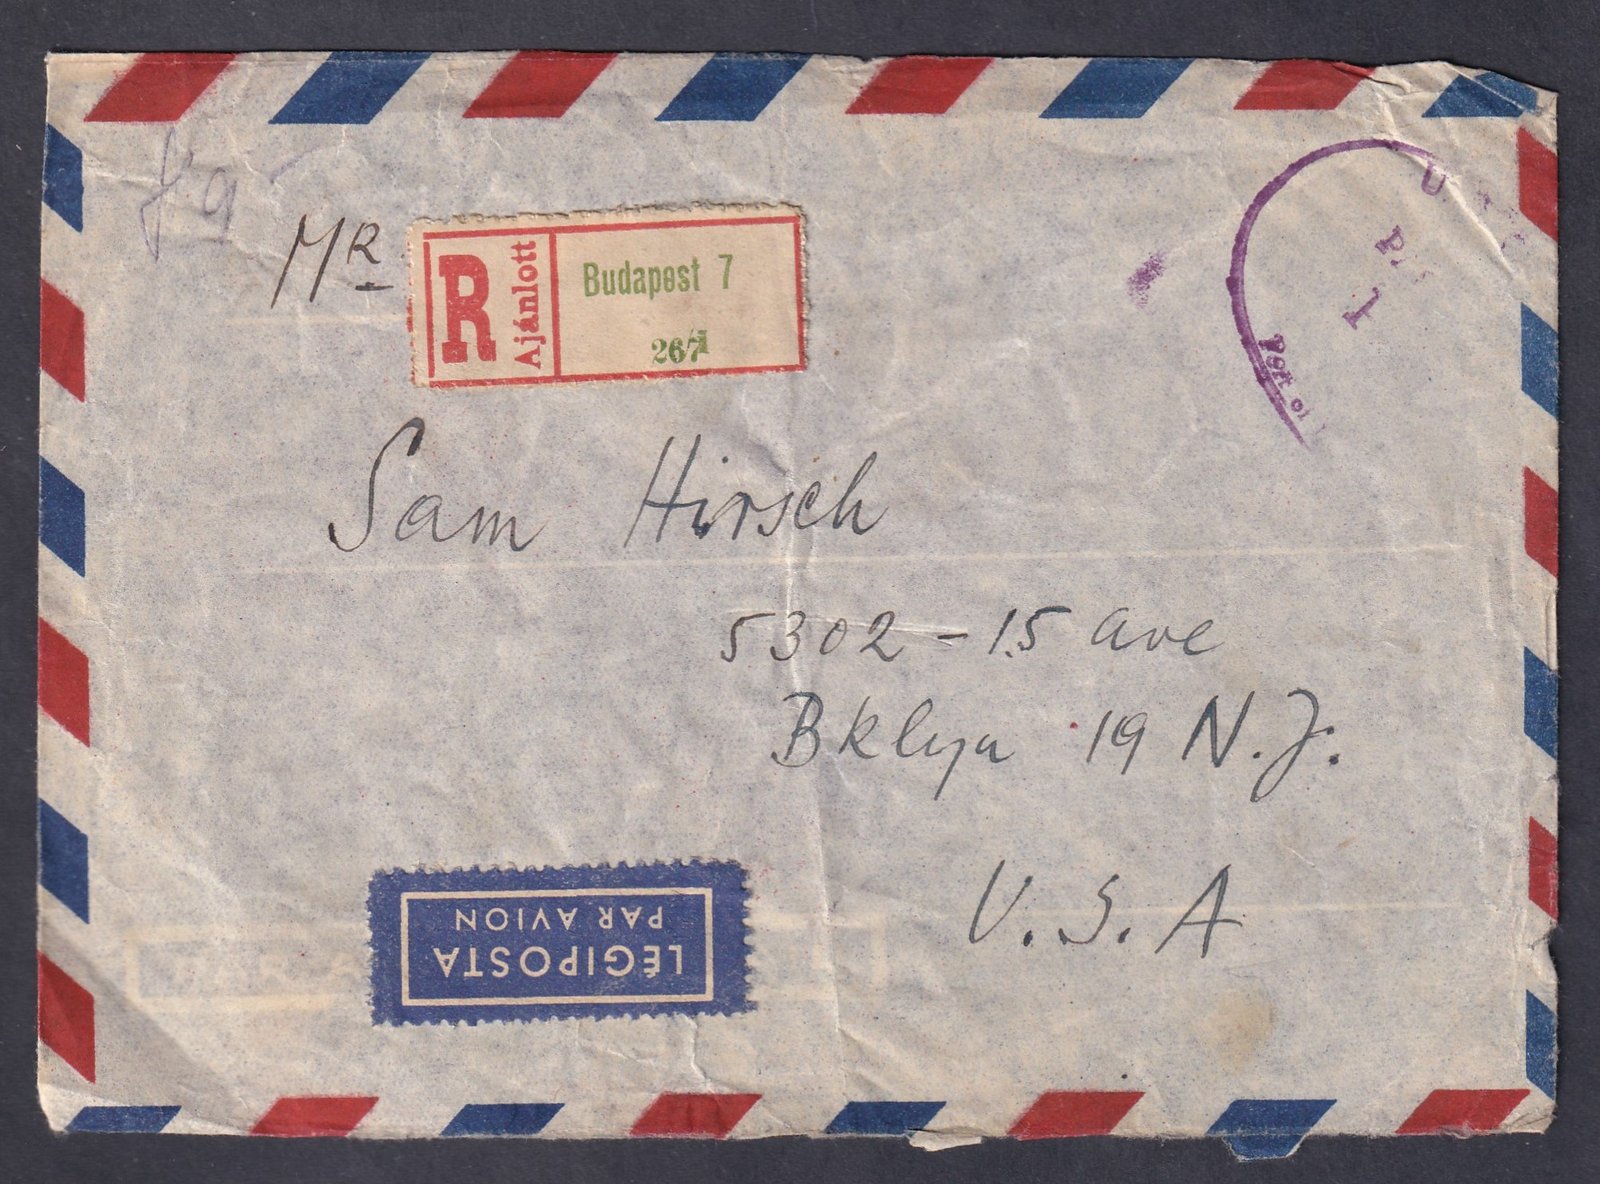 MR
R Ajánlott
Budapest 7
267
Sam Hirsch
5302 - 15 ave
Bklyn 19 N.J.
U.S.A
LÉGIPOSTA
PAR AVION
U.
1